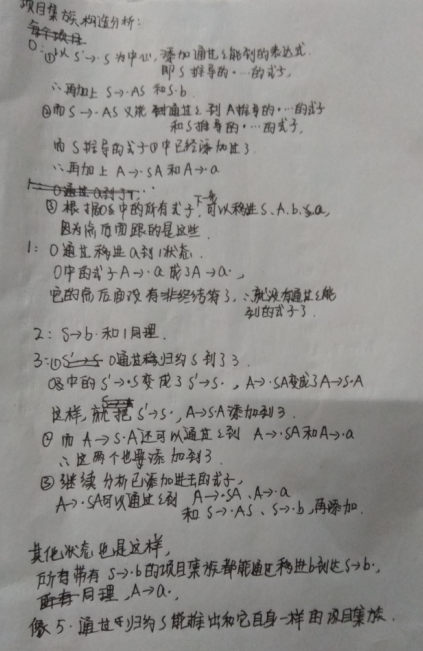 项目集族构造分析:
每个项目
0:①以 S'→·S 为中心,添加通过ε能到的表达式.
即 S 推导的·…的式子,
∴再加上 S→·AS 和 S→·b.
②而 S→·AS 又能通过ε到 A推导的·…的式子
和 S推导的·…的式子,
而 S推导的式子①中已经添加过了.
∴再加上 A→·SA 和 A→·a
0通过a到了1…
③根据0中的所有式子,下一步可以移进 S、A、b、a,
因为点后面跟的是这些.
1:0通过移进a到1状态.
0中的式子 A→·a 成了 A→a·,
它的点后面没有非终结符了,∴就没有通过ε能
到的式子了.
2:S→b·和1同理.
3:①0通过归约S到了3.
0中的 S'→·S变成了S'→S·,A→·SA变成了A→S·A
这样,就把 S'→S·,A→S·A添加到3.
②而 A→S·A还可以通过ε到 A→·SA 和 A→·a
∴这两个也要添加到3.
③继续分析已添加进去的式子,
A→·SA可以通过ε到 A→·SA、A→·a
和 S→·AS、S→·b,再添加.
其他状态也是这样,
所有带有 S→·b的项目集族都能通过移进b到达S→b·,
同理,A→a·.
像5·通过归约S能推出和它自身一样的项目集族.